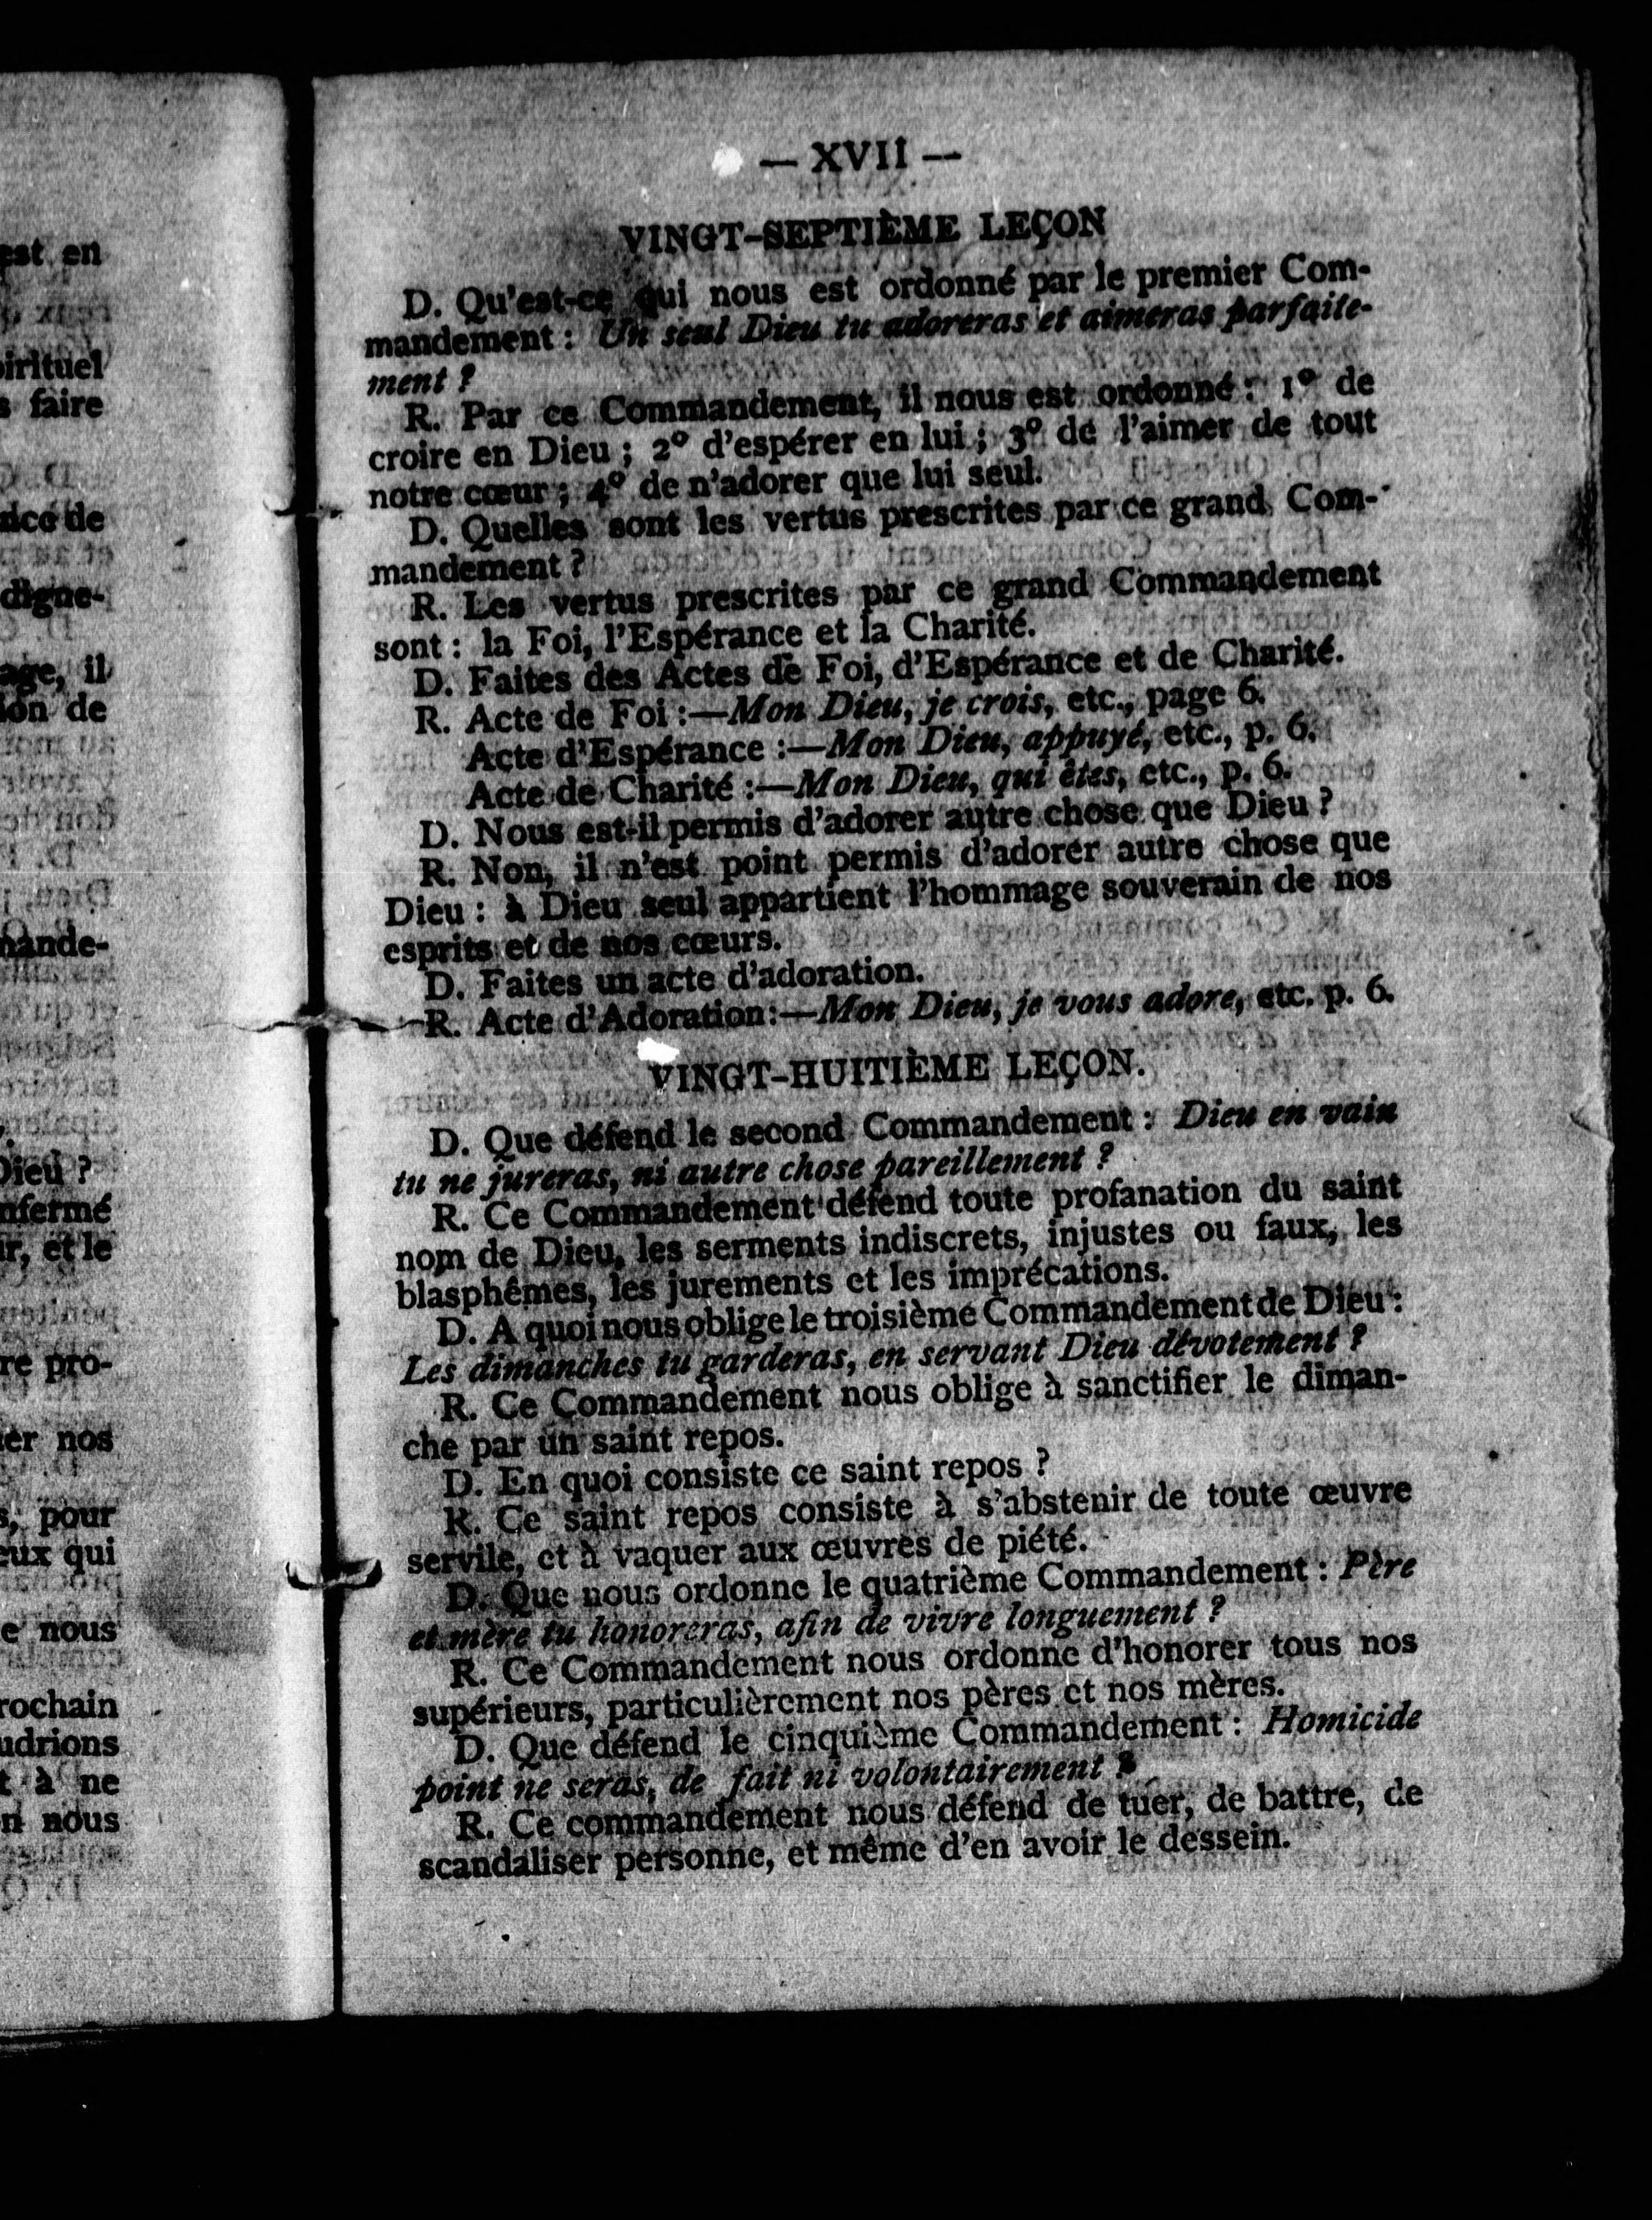 — XVII —
VINGT-SEPTIÈME LEÇON
D. Qu'est-ce qui nous est ordonné par le premier Com-
mandement : Un seul Dieu tu adoreras et aimeras parfaite-
ment ?
R. Par ce Commandement, il nous est ordonné : 1° de
croire en Dieu ; 2° d'espérer en lui ; 3° de l'aimer de tout
notre cœur ; 4° de n'adorer que lui seul.
D. Quelles sont les vertus prescrites par ce grand Com-
mandement ?
R. Les vertus prescrites par ce grand Commandement
sont : la Foi, l'Espérance et la Charité.
D. Faites des Actes de Foi, d'Espérance et de Charité.
R. Acte de Foi :—Mon Dieu, je crois, etc., page 6.
Acte d'Espérance :—Mon Dieu, appuyé, etc., p. 6.
Acte de Charité :—Mon Dieu, qui êtes, etc., p. 6.
D. Nous est-il permis d'adorer autre chose que Dieu ?
R. Non, il n'est point permis d'adorer autre chose que
Dieu : à Dieu seul appartient l'hommage souverain de nos
esprits et de nos cœurs.
D. Faites un acte d'adoration.
R. Acte d'Adoration:—Mon Dieu, je vous adore, etc. p. 6.
VINGT-HUITIÈME LEÇON.
D. Que défend le second Commandement : Dieu en vain
tu ne jureras, ni autre chose pareillement ?
R. Ce Commandement défend toute profanation du saint
nom de Dieu, les serments indiscrets, injustes ou faux, les
blasphêmes, les jurements et les imprécations.
D. A quoi nous oblige le troisième Commandement de Dieu :
Les dimanches tu garderas, en servant Dieu dévotement ?
R. Ce Commandement nous oblige à sanctifier le diman-
che par un saint repos.
D. En quoi consiste ce saint repos ?
R. Ce saint repos consiste à s'abstenir de toute œuvre
servile, et à vaquer aux œuvres de piété.
D. Que nous ordonne le quatrième Commandement : Père
et mère tu honoreras, afin de vivre longuement ?
R. Ce Commandement nous ordonne d'honorer tous nos
supérieurs, particulièrement nos pères et nos mères.
D. Que défend le cinquième Commandement : Homicide
point ne seras, de fait ni volontairement ?
R. Ce commandement nous défend de tuer, de battre, de
scandaliser personne, et même d'en avoir le dessein.